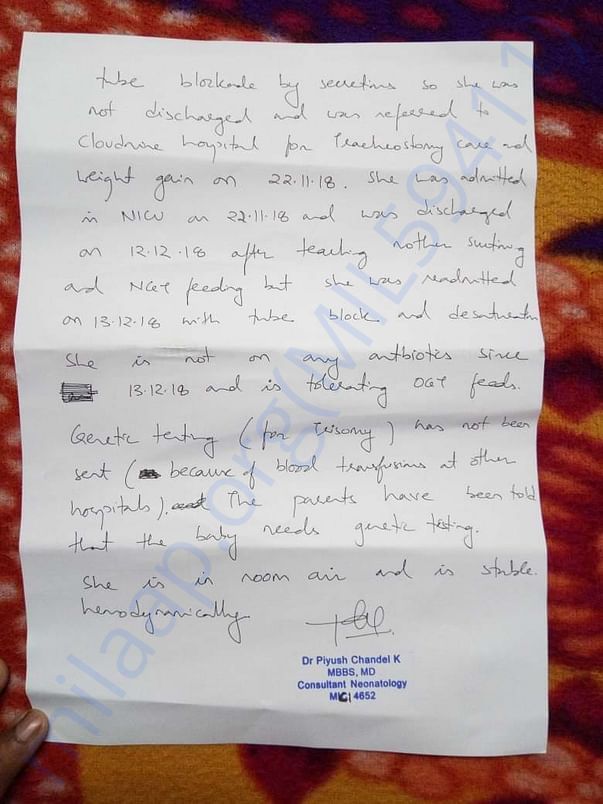 tube blockade by secretions so she was
not discharged and was referred to
Cloudnine hospital for Tracheostomy care and
weight gain on 22.11.18. She was admitted
in NICU on 22.11.18 and was discharged
on 12.12.18 after teaching mother suctioning
and NGT feeding but she was readmitted
on 13.12.18 with tube block and desaturation
She is not on any antibiotics since
13.12.18 and is tolerating OGT feeds.
Genetic testing (for Trisomy) has not been
sent (because of blood transfusions at other
hospitals). The parents have been told
that the baby needs genetic testing.
She is in room air and is stable.
hemodynamically
Dr Piyush Chandel K
MBBS, MD
Consultant Neonatology
4652
milaap.org(MIL59411